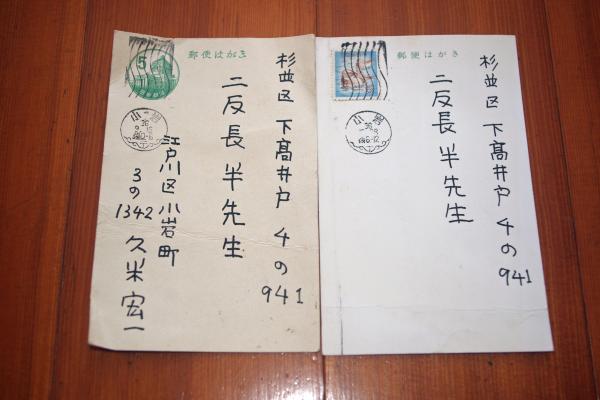 郵便はがき
5
小岩
36
杉並区 下高井戸 4の941
二反長半先生
江戸川区小岩町
3の1342
久米宏一
郵便はがき
小岩
杉並区 下高井戸 4の941
二反長半先生